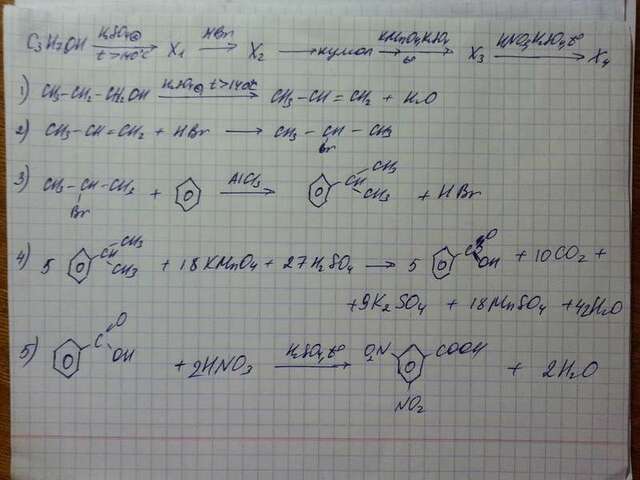 C3H7OH H2SO4(к) t>140°C → X1 HBr → X2 → кумол KMnO4, H2SO4 t° → X3 HNO3, H2SO4, t° → X4
1) CH3-CH2-CH2OH H2SO4(к), t>140°C → CH3-CH=CH2 + H2O
2) CH3-CH=CH2 + HBr → CH3-CH-CH3
Br
3) CH3-CH-CH3 + AlCl3 → CH CH3 CH3 + HBr
Br
4) 5 CH CH3 CH3 + 18KMnO4 + 27H2SO4 → 5 C O OH + 10CO2 +
+ 9K2SO4 + 18MnSO4 + 42H2O
5) C O OH + 2HNO3 H2SO4, t° → O2N COOH + 2H2O
NO2